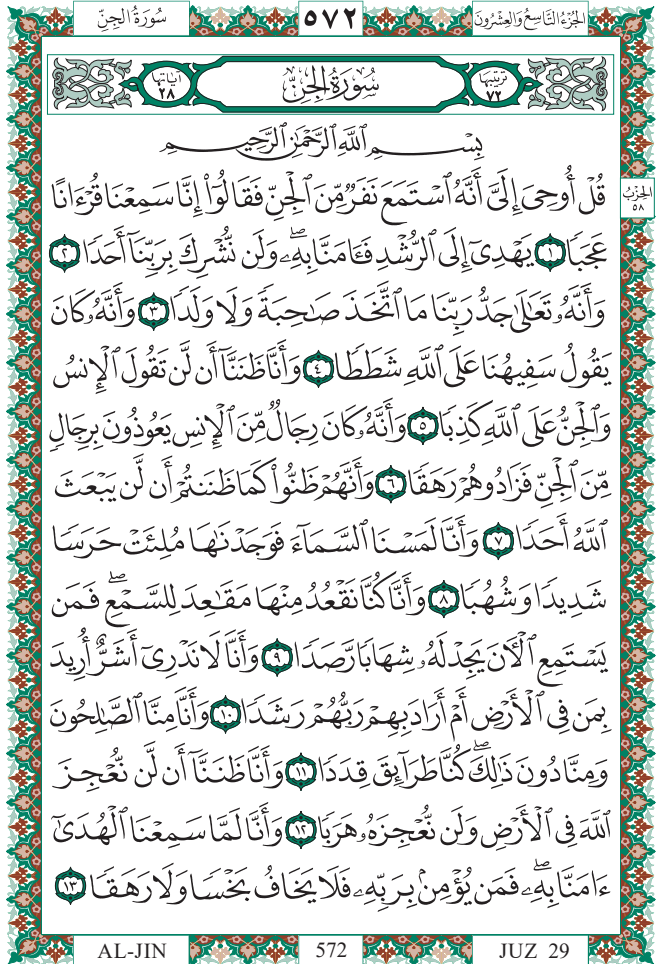 الجُزْءُ التَّاسِعُ وَالعِشْرُونَ ٥٧٢ سُورَةُ الجِنِّ
تَرْتِيبُهَا ٧٢ سُورَةُ الجِنِّ آيَاتُهَا ٢٨
بِسْمِ ٱللَّهِ ٱلرَّحْمَٰنِ ٱلرَّحِيمِ
قُلْ أُوحِىَ إِلَىَّ أَنَّهُ ٱسْتَمَعَ نَفَرٌ مِّنَ ٱلْجِنِّ فَقَالُوٓا۟ إِنَّا سَمِعْنَا قُرْءَانًا
الحِزْبُ ٥٨
عَجَبًا ١ يَهْدِىٓ إِلَى ٱلرُّشْدِ فَـَٔامَنَّا بِهِۦ ۖ وَلَن نُّشْرِكَ بِرَبِّنَآ أَحَدًا ٢
وَأَنَّهُۥ تَعَٰلَىٰ جَدُّ رَبِّنَا مَا ٱتَّخَذَ صَٰحِبَةً وَلَا وَلَدًا ٣ وَأَنَّهُۥ كَانَ
يَقُولُ سَفِيهُنَا عَلَى ٱللَّهِ شَطَطًا ٤ وَأَنَّا ظَنَنَّآ أَن لَّن تَقُولَ ٱلْإِنسُ
وَٱلْجِنُّ عَلَى ٱللَّهِ كَذِبًا ٥ وَأَنَّهُۥ كَانَ رِجَالٌ مِّنَ ٱلْإِنسِ يَعُوذُونَ بِرِجَالٍ
مِّنَ ٱلْجِنِّ فَزَادُوهُمْ رَهَقًا ٦ وَأَنَّهُمْ ظَنُّوا۟ كَمَا ظَنَنتُمْ أَن لَّن يَبْعَثَ
ٱللَّهُ أَحَدًا ٧ وَأَنَّا لَمَسْنَا ٱلسَّمَآءَ فَوَجَدْنَٰهَا مُلِئَتْ حَرَسًا
شَدِيدًا وَشُهُبًا ٨ وَأَنَّا كُنَّا نَقْعُدُ مِنْهَا مَقَٰعِدَ لِلسَّمْعِ ۖ فَمَن
يَسْتَمِعِ ٱلْـَٔانَ يَجِدْ لَهُۥ شِهَابًا رَّصَدًا ٩ وَأَنَّا لَا نَدْرِىٓ أَشَرٌّ أُرِيدَ
بِمَن فِى ٱلْأَرْضِ أَمْ أَرَادَ بِهِمْ رَبُّهُمْ رَشَدًا ١٠ وَأَنَّا مِنَّا ٱلصَّٰلِحُونَ
وَمِنَّا دُونَ ذَٰلِكَ ۖ كُنَّا طَرَآئِقَ قِدَدًا ١١ وَأَنَّا ظَنَنَّآ أَن لَّن نُّعْجِزَ
ٱللَّهَ فِى ٱلْأَرْضِ وَلَن نُّعْجِزَهُۥ هَرَبًا ١٢ وَأَنَّا لَمَّا سَمِعْنَا ٱلْهُدَىٰٓ
ءَامَنَّا بِهِۦ ۖ فَمَن يُؤْمِنۢ بِرَبِّهِۦ فَلَا يَخَافُ بَخْسًا وَلَا رَهَقًا ١٣
AL-JIN 572 JUZ 29